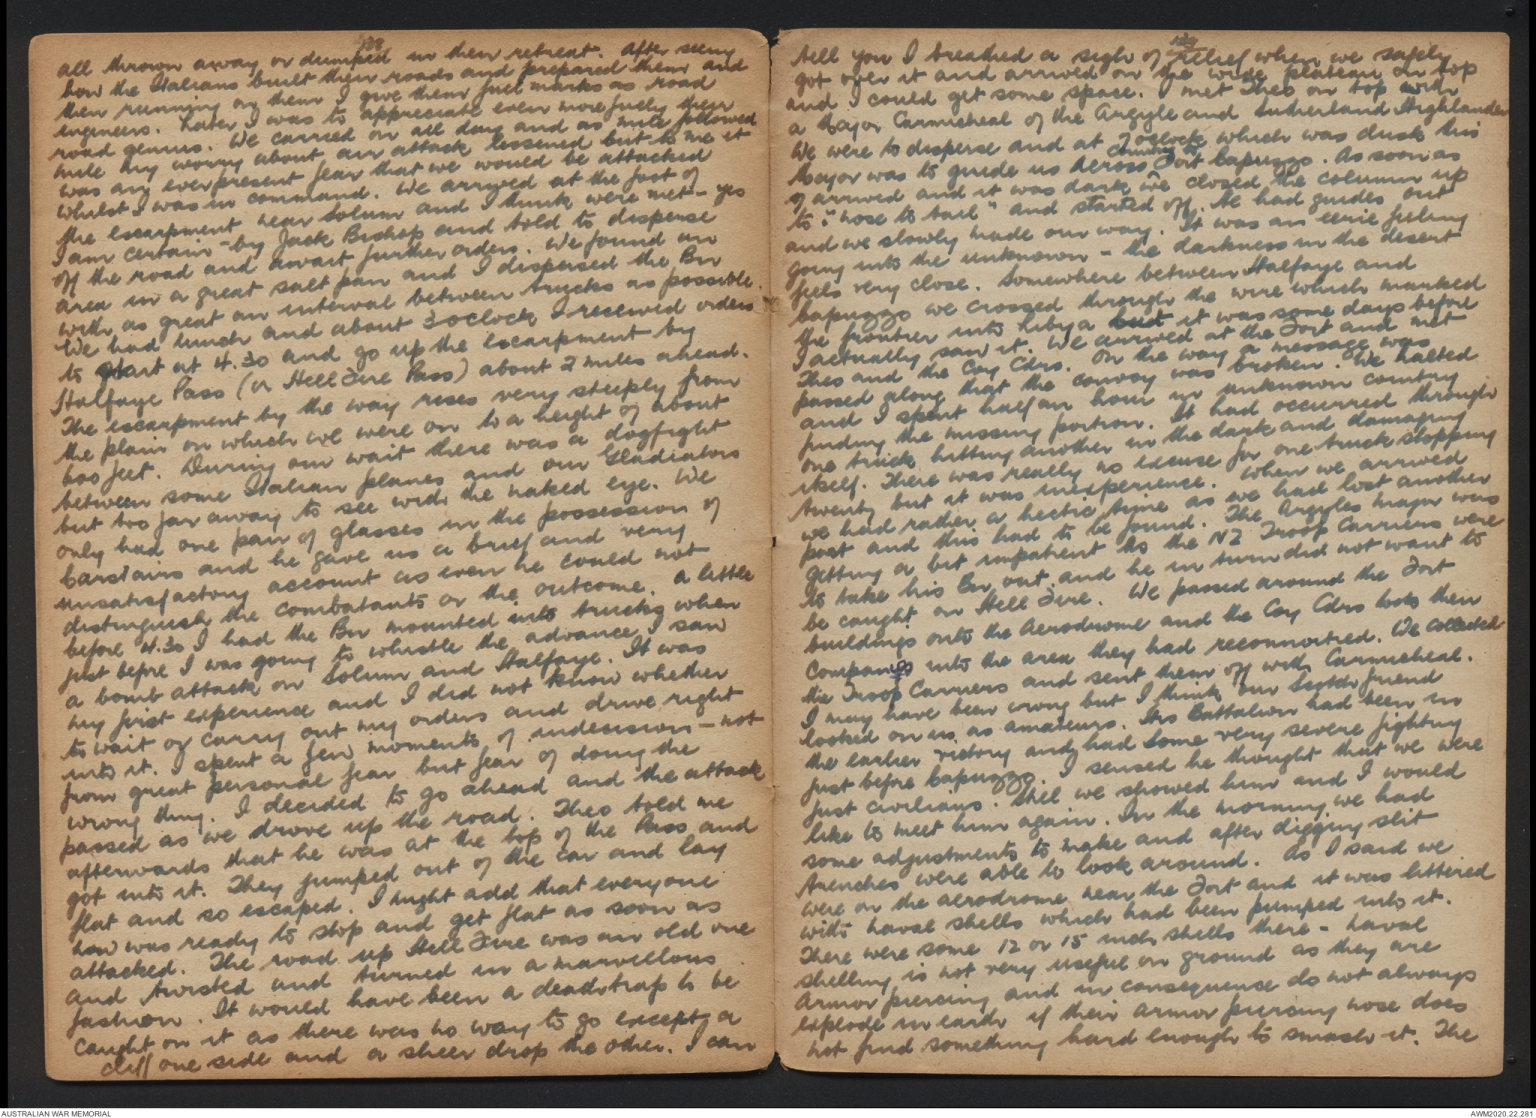 138
all thrown away or dumped in their retreat. After seeing
how the Italians built their roads and prepared them and
then running on them I give them full marks as road
engineers. Later I was to appreciate even more fully their
road genius. We carried on all day and as mile followed
mile my worry about air attack lessened but to me it
was an everpresent fear that we would be attacked
whilst I was in command. We arrived at the foot of
the escarpment near Solum and I think were met - yes
I am certain - by Jack Bishop and told to disperse
off the road and await further orders. We found an
area in a great salt pan and I dispersed the Bn
with as great an interval between trucks as possible.
We had lunch and about 3 oclock I received orders
to start at 4.30 and go up the escarpment by
Halfaye Pass (or Hell Fire Pass) about 2 miles ahead.
The escarpment by the way rises very steeply from
the plain on which we were on to a height of about
600 feet. During our wait there was a dogfight
between some Italian planes and our Gladiators
but too far away to see with the naked eye. We
only had one pair of glasses in the possession of
Carstairs and he gave us a brief and very
unsatisfactory account as even he could not
distinguish the combatants or the outcome. A little
before 4.30 I had the Bn mounted into trucks when
just before I was going to whistle the advance I saw
a bomb attack on Solum and Halfaye. It was
my first experience and I did not know whether
to wait or carry out my orders and drive right
into it. I spent a few moments of indecision - not
from great personal fear but fear of doing the
wrong thing. I decided to go ahead and the attack
passed as we drove up the road. Theo told me
afterwards that he was at the top of the Pass and
got into it. They jumped out of the car and lay
flat and so escaped. I might add that everyone
now was ready to stop and get flat as soon as
attacked. The road up Hell Fire was an old one
and twisted and turned in a marvellous
fashion. It would have been a deathtrap to be
caught on it as there was no way to go except a
cliff one side and a sheer drop the other. I can
139
tell you I breathed a sigh of relief when we safely
got over it and arrived on the wide plateau on top
and I could get some space. I met Theo on top with
a Major Carmicheal of the Argyle and Sutherland Highlanders
We were to disperse and at 7 oclock which was dusk this
Major was to guide us across to Fort Capuzzo. As soon as
I arrived and it was dark we closed the column up
to "nose to tail" and started off. He had guides out
and we slowly made our way. It was an eerie feeling
going into the unknown - the darkness in the desert
feels very close. Somewhere between Halfaye and
Capuzzo we crossed through the wire which marked
the frontier into Libya but it was some days before
I actually saw it. We arrived at the Fort and met
Theo and the Coy Cdrs. On the way a message was
passed along that the convoy was broken. We halted
and I spent half an hour in unknown country
finding the missing portion. It had occurred through
one truck hitting another in the dark and damaging
itself. There was really no excuse for one truck stopping
twenty but it was inexperience. When we arrived
we had rather a hectic time as we had lost another
part and this had to be found. The Argyles major was
getting a bit impatient as the NZ Troop Carriers were
to take his Bn out and he in turn did not want to
be caught on Hell Fire. We passed around the Fort
buildings onto the Aerodrome and the Coy Cdrs took their
Companies into the area they had reconnoitred. We collected
the Troop Carriers and sent them off with Carmicheal.
I may have been wrong but I think our Scotch friend
looked on us as amateurs. His Battalion had been in
the earlier victory and had some very severe fighting
just before Capuzzo. I sensed he thought that we were
just civilians. Still we showed him and I would
like to meet him again. In the morning we had
some adjustments to make and after digging slit
trenches were able to look around. As I said we
were on the aerodrome near the Fort and it was littered
with naval shells which had been pumped into it.
There were some 12 or 15 inch shells there - naval
shelling is not very useful on ground as they are
armor piercing and in consequence do not always
explode in earth if their armor piercing nose does
not find something hard enough to smash it. The
AUSTRALIAN WAR MEMORIAL
AWM2020.22.281